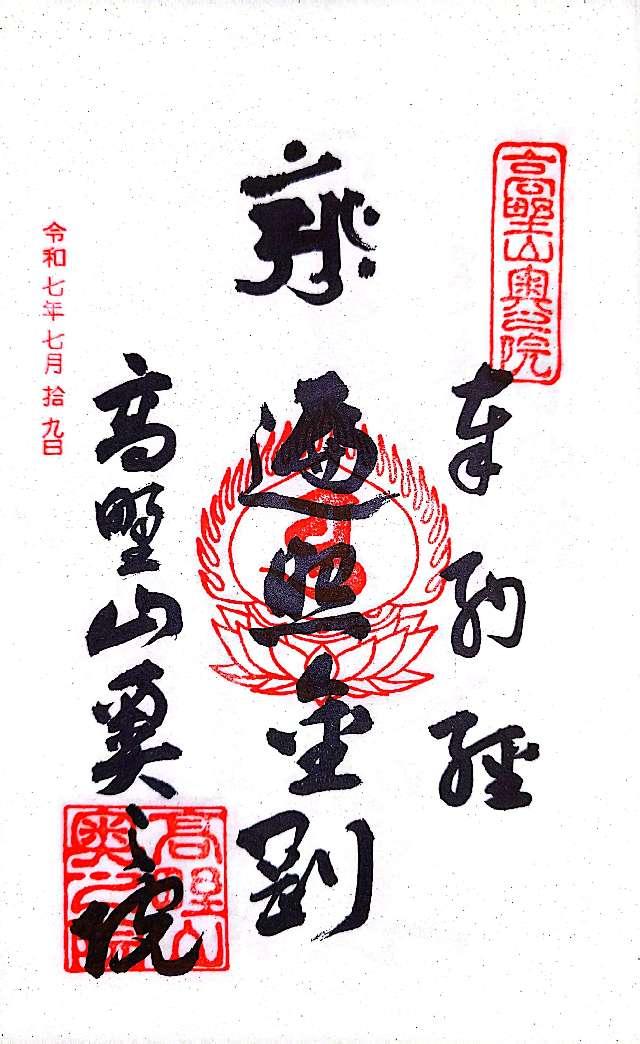 高野山奥之院
奉納経
遍照金剛
高野山奥之院
高野山奥之院
令和七年七月拾九日